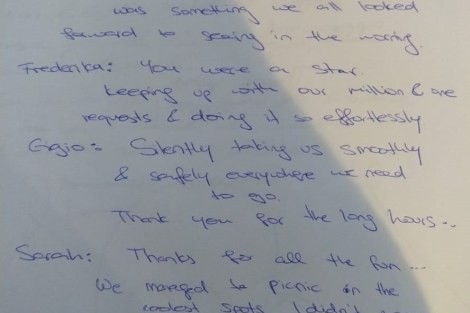 was something we all looked
forward to seeing in the morning.
Frederika: You were a star.
keeping up with our million & one
requests & doing it so effortlessly
Gigio: Silently taking us smoothly
& safely everywhere we need
to go.
Thank you for the long hours...
Sarah: Thanks for all the fun...
We managed to picnic in the
coolest spots I didn't